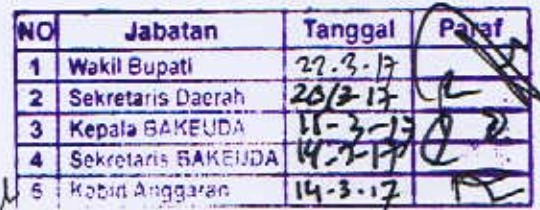 NO Jabatan Tanggal Paraf
1 Wakil Bupati 22.3.17
2 Sekretaris Daerah 20/3-17
3 Kepala BAKEUDA
4 Sekretaris BAKEUDA 14-3-17
5 Kabid Anggaran 14-3-17